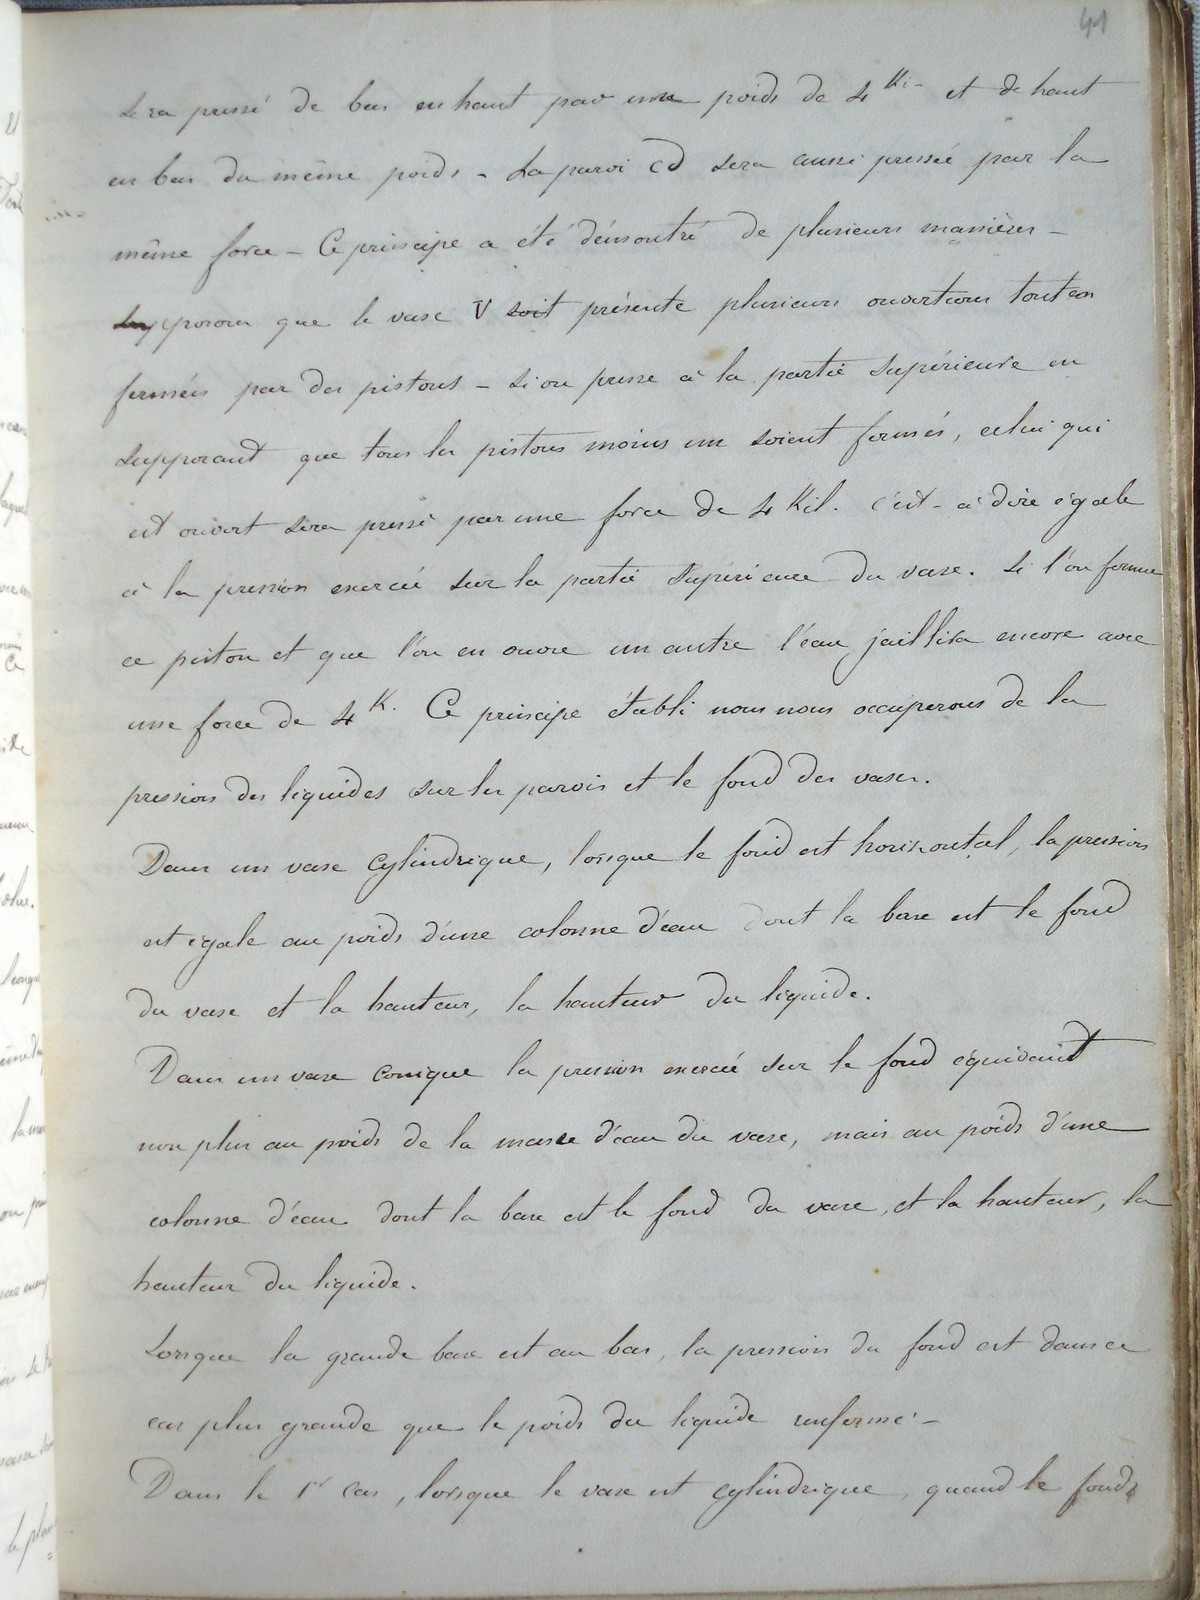 41
sera pressé de bas en haut par un poids de 4 Ki. et de haut
en bas du même poids - La paroi CD sera aussi pressée par la
même force - Ce principe a été démontré de plusieurs manières -
supposons que le vase V soit présente plusieurs ouvertures toutes
fermées par des pistons - si on presse à la partie supérieure en
supposant que tous les pistons moins un soient fermés, celui qui
est ouvert sera pressé par une force de 4 Kil. c'est-à dire égale
à la pression exercée sur la partie supérieure du vase. Si l'on ferme
ce piston et que l'on en ouvre un autre l'eau jaillira encore avec
une force de 4 K. Ce principe établi nous nous occuperons de la
pression des liquides sur les parois et le fond des vases.
Dans un vase cylindrique, lorsque le fond est horizontal, la pression
est égale au poids d'une colonne d'eau dont la base est le fond
du vase et la hauteur, la hauteur du liquide.
Dans un vase conique la pression exercée sur le fond équivaut
non plus au poids de la masse d'eau du vase, mais au poids d'une
colonne d'eau dont la base est le fond du vase, et la hauteur, la
hauteur du liquide.
Lorsque la grande base est au bas, la pression du fond est dans ce
cas plus grande que le poids du liquide renfermé -
Dans le 1er cas, lorsque le vase est cylindrique, quand le fond